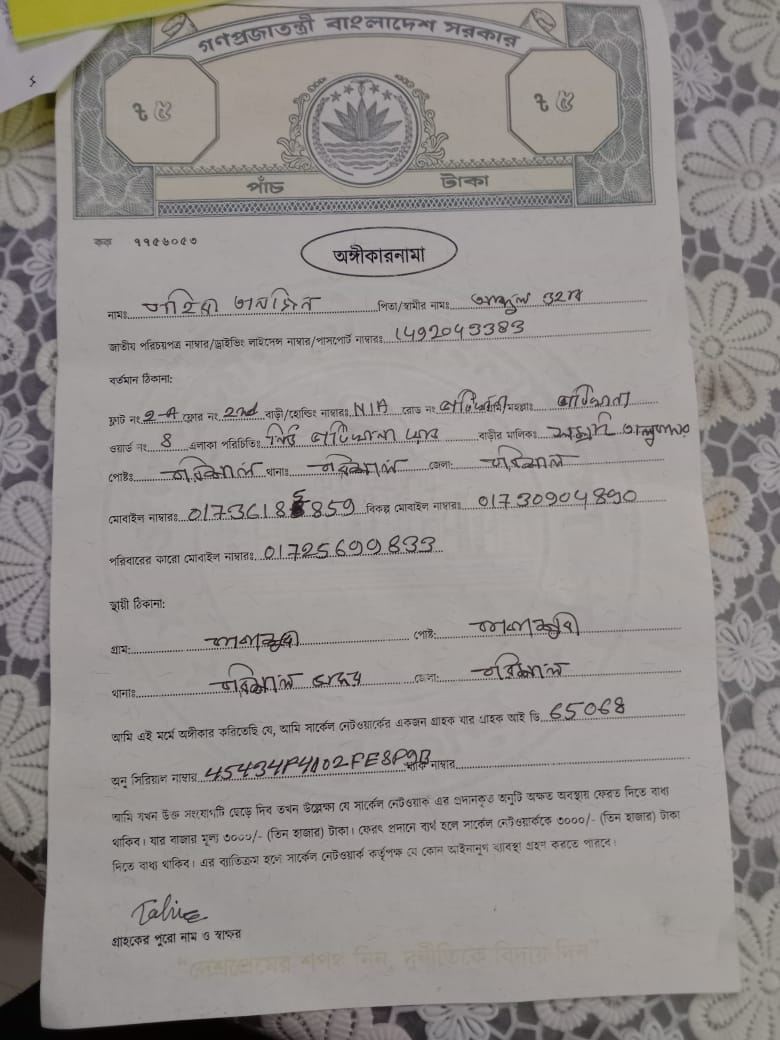 গণপ্রজাতন্ত্রী বাংলাদেশ সরকার
৳ ৫ ৳ ৫
পাঁচ টাকা
কক ৭৭৫৬০৫৩
অঙ্গীকারনামা
নামঃ পিতা/স্বামীর নামঃ
জাতীয় পরিচয়পত্র নাম্বার/ড্রাইভিং লাইসেন্স নাম্বার/পাসপোর্ট নাম্বারঃ 1492043383
বর্তমান ঠিকানা:
ফ্লাট নং 2-A ফ্লোর নং 2nd বাড়ী/হোল্ডিং নাম্বারঃ N/A রোড নং
ওয়ার্ড নং 8 এলাকা পরিচিতিঃ বাড়ীর মালিকঃ
পোষ্টঃ বরিশাল থানাঃ বরিশাল জেলা: বরিশাল
মোবাইল নাম্বারঃ 01736185859 বিকল্প মোবাইল নাম্বারঃ 01730904890
পরিবারের কারো মোবাইল নাম্বারঃ 01725699833
স্থায়ী ঠিকানা:
গ্রাম: পোষ্ট:
থানাঃ বরিশাল সদর জেলা: বরিশাল
আমি এই মর্মে অঙ্গীকার করিতেছি যে, আমি সার্কেল নেটওয়ার্কের একজন গ্রাহক যার গ্রাহক আই ডি 65068
অনু সিরিয়াল নাম্বার 45434P4A02FE8P9B ম্যাক নাম্বার
আমি যখন উক্ত সংযোগটি ছেড়ে দিব তখন উল্লেক্ষ্য যে সার্কেল নেটওয়ার্ক এর প্রদানকৃত অনুটি অক্ষত অবস্থায় ফেরত দিতে বাধ্য
থাকিব। যার বাজার মূল্য ৩০০০/- (তিন হাজার) টাকা। ফেরৎ প্রদানে ব্যর্থ হলে সার্কেল নেটওয়ার্ককে ৩০০০/- (তিন হাজার) টাকা
দিতে বাধ্য থাকিব। এর ব্যতিক্রম হলে সার্কেল নেটওয়ার্ক কর্তৃপক্ষ যে কোন আইনানুগ ব্যবস্থা গ্রহন করতে পারবে।
গ্রাহকের পুরো নাম ও স্বাক্ষর
"দেশপ্রেমের শপথ নিন, দুর্নীতিকে বিদায় দিন"